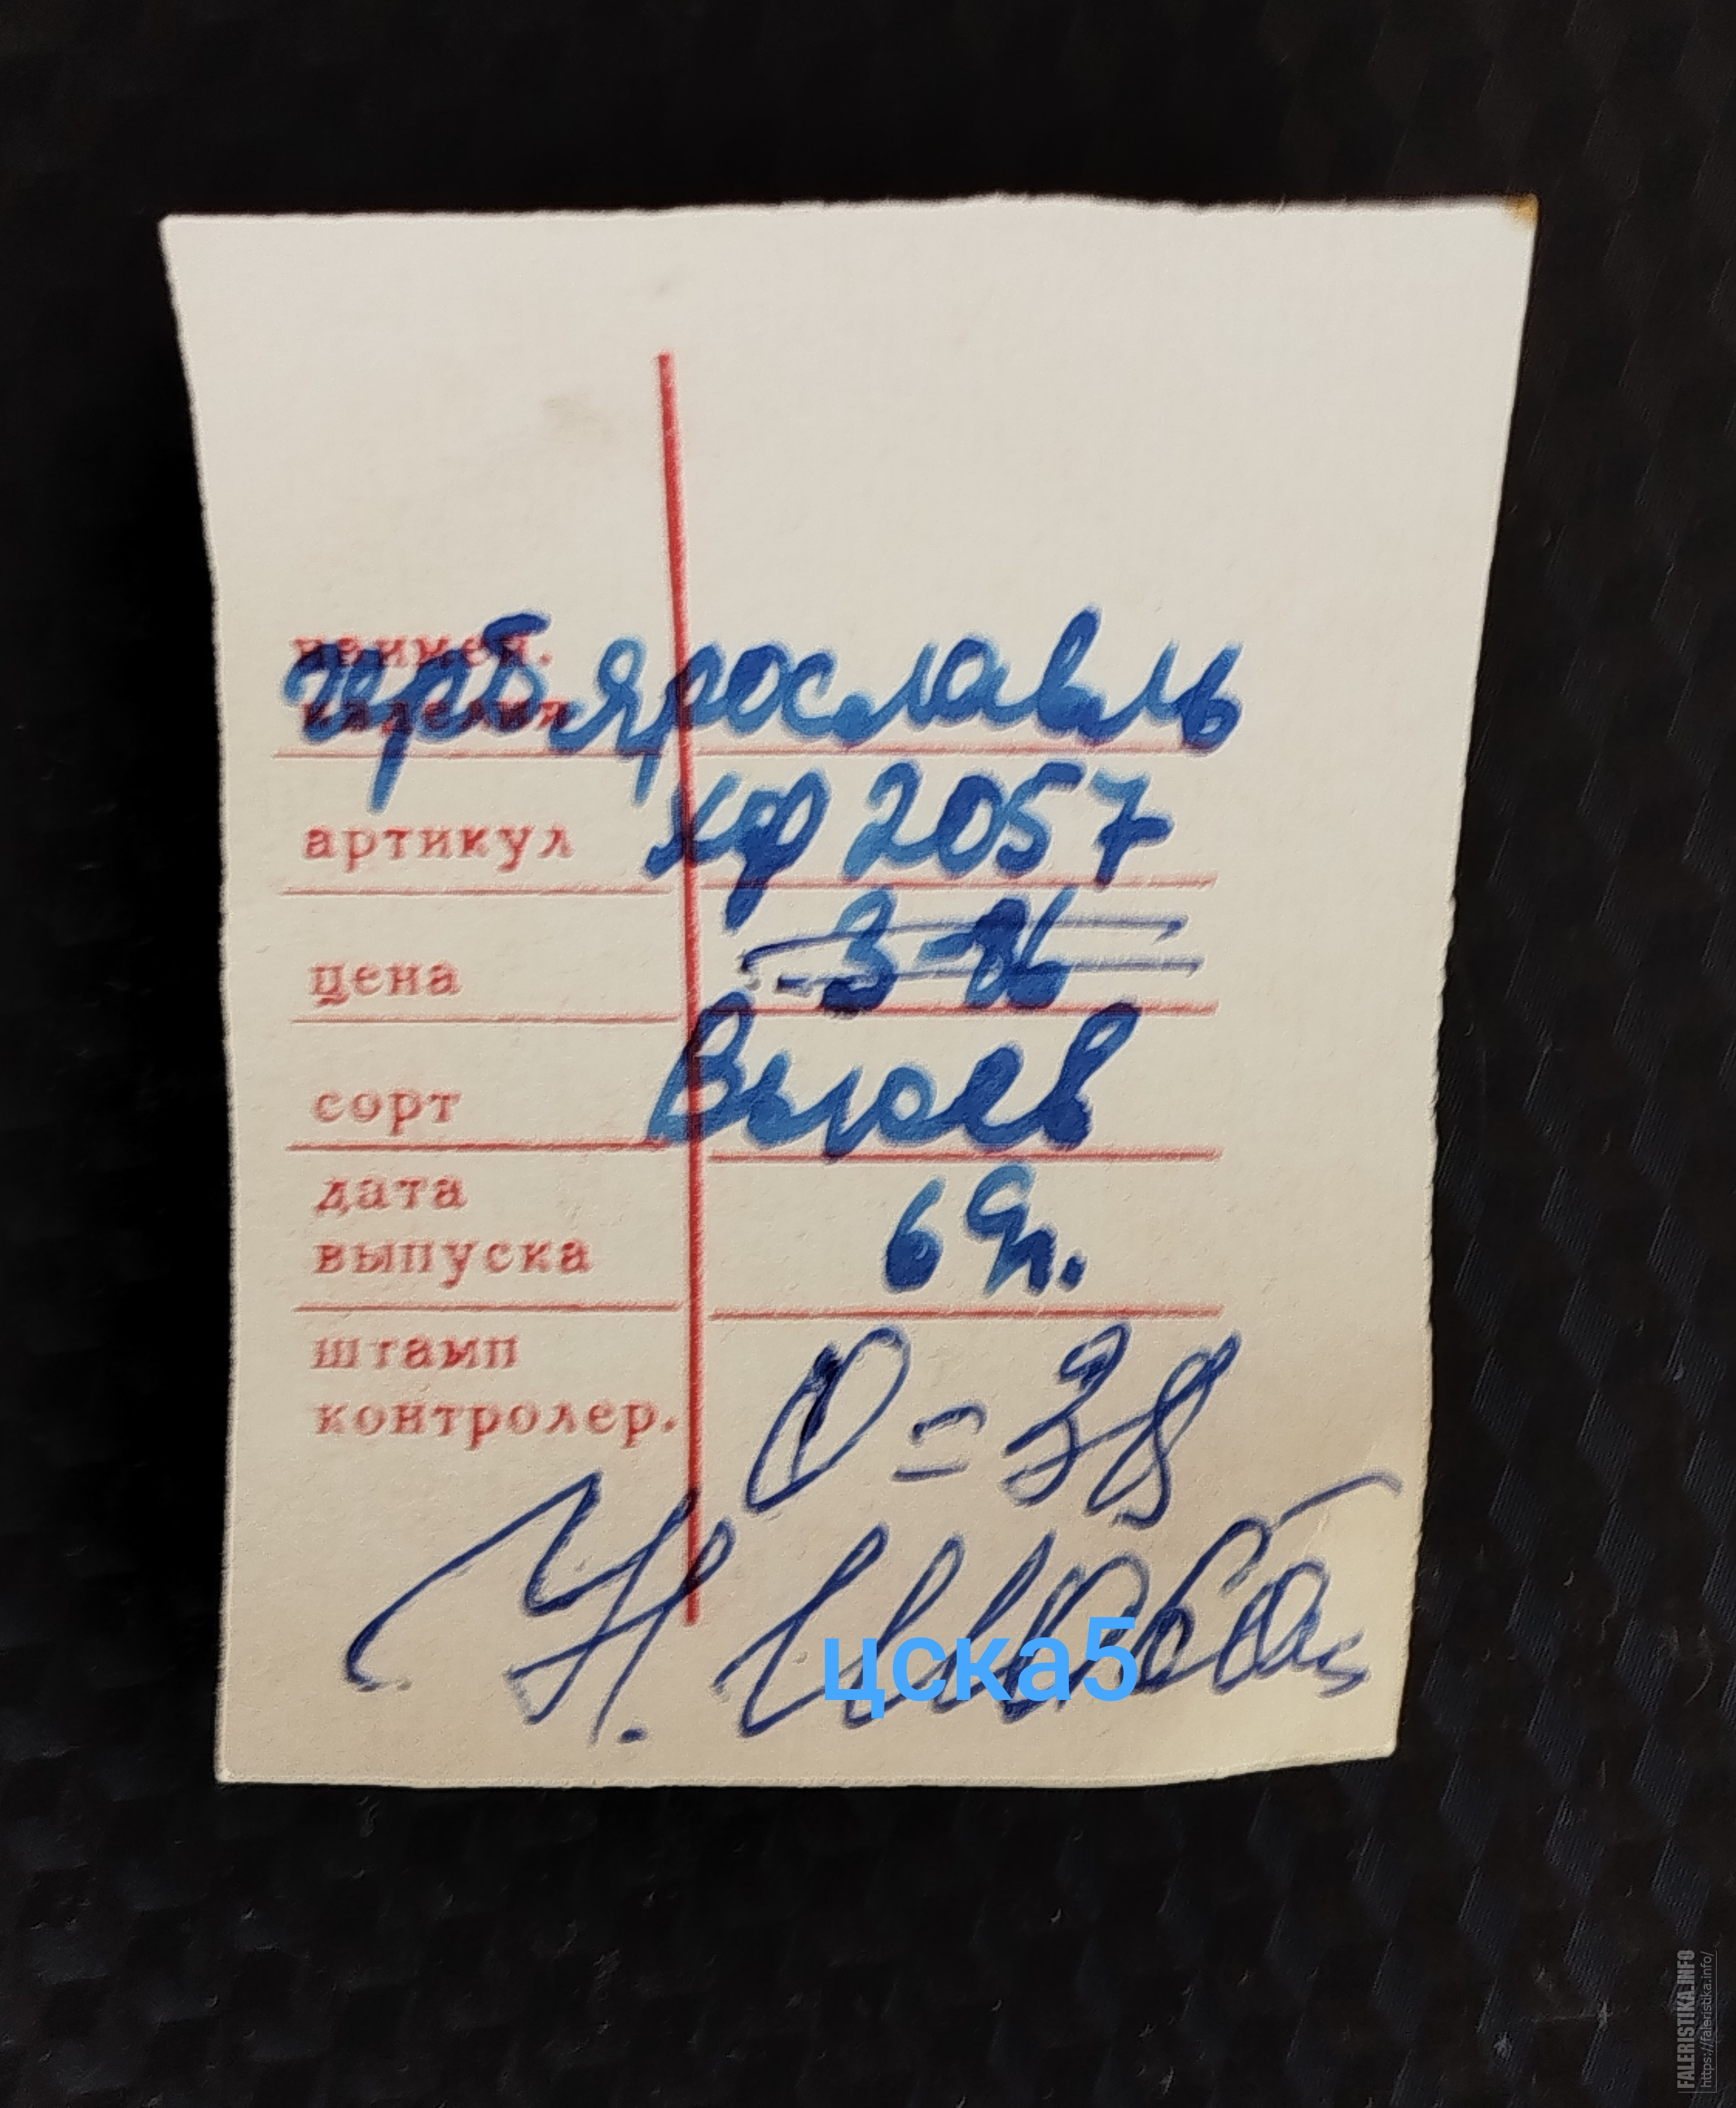 наимен. герб Ярославль
изделия
артикул хф 2057
цена 3-86
сорт
дата 69г.
выпуска
штамп 0=38
контролер.
Н.
цска5
FALERISTIKA.INFO
https://faleristika.info/